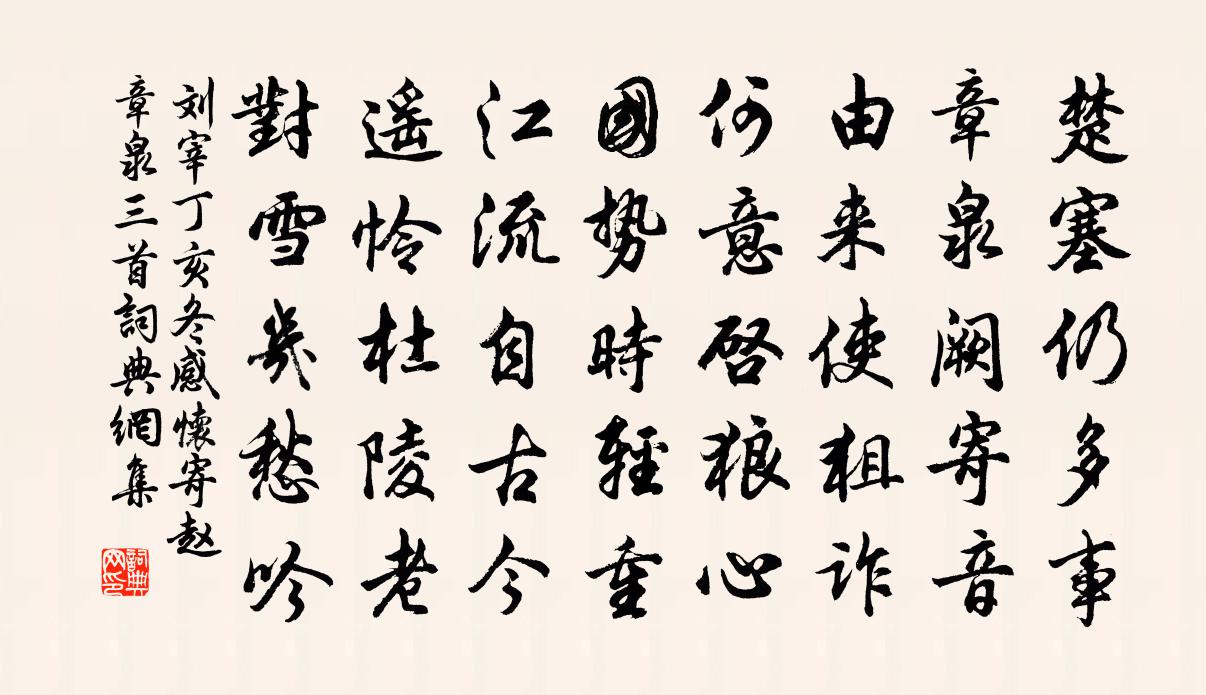 楚塞仍多事
章泉阙寄音
由来使狙诈
何意启狼心
國势時輕重
江流自古今
遥怜杜陵老
對雪幾愁吟
刘宰丁亥冬感懷寄赵
章泉三首詞典網集
詞典网印